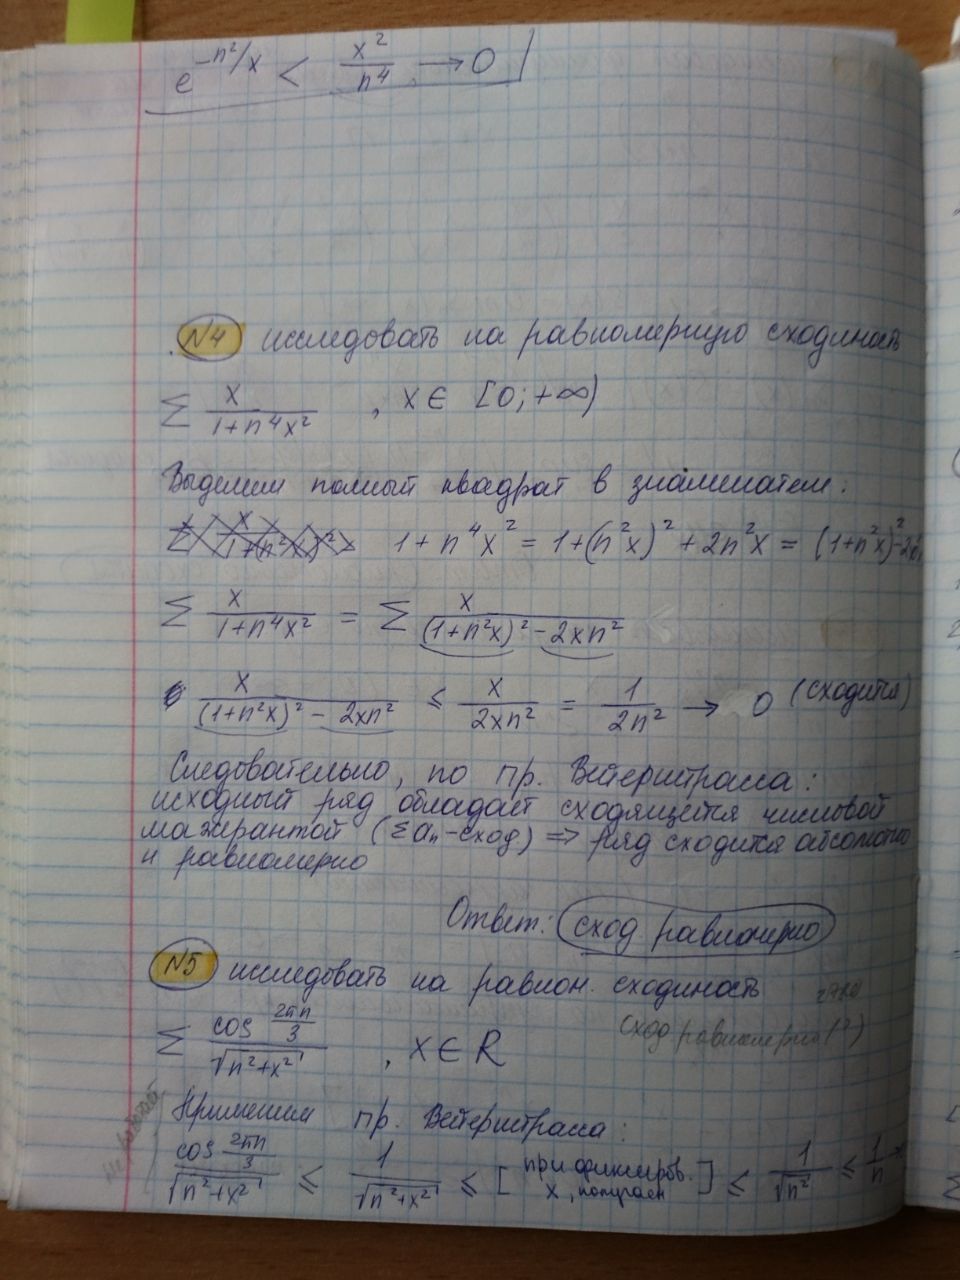 e^{-n²/x} < x²/n⁴ → 0
N4 исследовать на равномерную сходиность
∑ x/(1+n⁴x²) , x ∈ [0; +∞)
Выделим полный квадрат в знаменателе:
1 + n⁴x² = 1+(n²x)² + 2n²x = (1+n²x)² - 2
∑ x/(1+n⁴x²) = ∑ x/((1+n²x)² - 2xn²)
x/((1+n²x)² - 2xn²) ≤ x/(2xn²) = 1/(2n²) → 0 (сходится)
Следовательно, по пр. Вейерштрасса:
исходный ряд обладает сходящейся числовой
мажорантой (∑aₙ-сход) => ряд сходится абсолютно
и равномерно
Ответ: сход равномерно
N5 исследовать на равном. сходиность
сход равномерно (?)
∑ cos(2πn/3)/√(n²+x²) , x ∈ R
Применим пр. Вейерштрасса:
Не работает
cos(2πn/3)/√(n²+x²) ≤ 1/√(n²+x²) ≤ [при фиксиров. x, получаем] ≤ 1/√(n²) ≤ 1/n